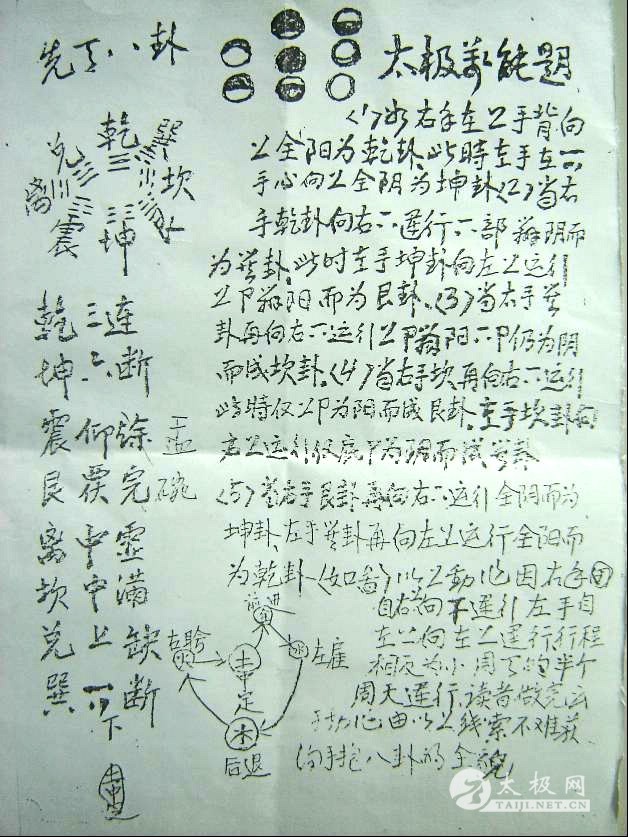 先天八卦
太极万能题
乾
兑
巽
离
坎
震
坤
艮
(1)如右手在上手背向
上全阳为乾卦,此時左手在下
手心向上全阴为坤卦(2)当右
手乾卦向右下運行,下部翻阴而
为巽卦,此时左手坤卦向左上运行
上部翻阳而为艮卦,(3)当右手巽
卦再向右下运行上部翻阳,下部仍为阴
而成坎卦,(4)当右手坎再向右下运行
此時仅上部为阳而成艮卦,左手坎卦向
左上运行仅底部为阴而成巽卦
(5)当右手艮卦再向右下运行全阴而为
坤卦,左手巽卦再向左上运行全阳而
为乾卦(如畜)以上動作因右手
自右向下運行左手自
左上向左上運行行程
相反为小周天的半个
周天運行,读者做完
手功他由以上线索不难获
向手抱八卦的全貌
乾三连
坤六断
震仰盂
艮覆碗
离中虚
坎中满
兑上缺
巽下断
前进
右盼
左雇
中定
后退
太极网
TAIJI.NET.CN